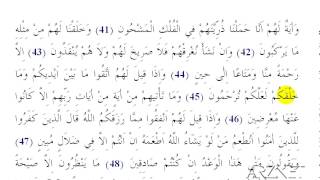 وَآيَةٌ لَهُمْ اَنَّا حَمَلْنَا ذُرِّيَّتَهُمْ فِي الْفُلْكِ الْمَشْحُونِ (41) وَخَلَقْنَا لَهُمْ مِنْ مِثْلِهِ
مَا يَرْكَبُونَ (42) وَاِنْ نَشَأْ نُغْرِقْهُمْ فَلَا صَرِيخَ لَهُمْ وَلَا هُمْ يُنْقَذُونَ (43) اِلَّا
رَحْمَةً مِنَّا وَمَتَاعًا اِلَى حِينٍ (44) وَاِذَا قِيلَ لَهُمُ اتَّقُوا مَا بَيْنَ اَيْدِيكُمْ وَمَا
خَلْفَكُمْ لَعَلَّكُمْ تُرْحَمُونَ (45) وَمَا تَأْتِيهِمْ مِنْ اَيَةٍ مِنْ اَيَاتِ رَبِّهِمْ اِلَّا كَانُوا
عَنْهَا مُعْرِضِينَ (46) وَاِذَا قِيلَ لَهُمْ اَنْفِقُوا مِمَّا رَزَقَكُمُ اللَّهُ قَالَ الَّذِينَ كَفَرُوا
لِلَّذِينَ اَمَنُوا اَنُطْعِمُ مَنْ لَوْ يَشَاءُ اللَّهُ اَطْعَمَهُ اِنْ اَنْتُمْ اِلَّا فِي ضَلَالٍ مُبِينٍ (47)
وَيَقُولُونَ مَتَى هَذَا الْوَعْدُ اِنْ كُنْتُمْ صَادِقِينَ (48) مَا يَنْظُرُونَ اِلَّا صَيْحَةً